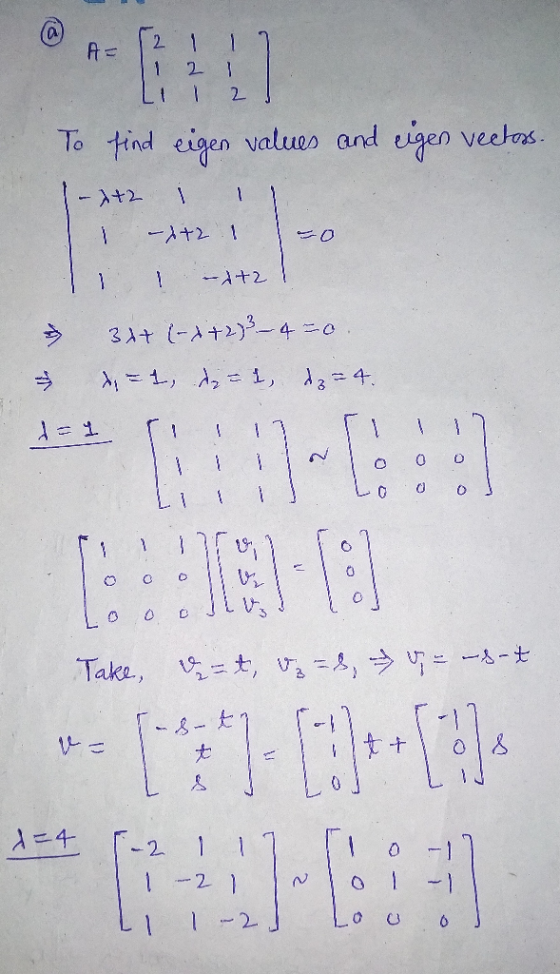 (a) A = [2 1 1; 1 2 1; 1 1 2]
To find eigen values and eigen vectors.
|-λ+2 1 1; 1 -λ+2 1; 1 1 -λ+2| = 0
⇒ 3λ + (-λ+2)³ - 4 = 0.
⇒ λ₁ = 1, λ₂ = 1, λ₃ = 4.
λ = 1 [1 1 1; 1 1 1; 1 1 1] ~ [1 1 1; 0 0 0; 0 0 0]
[1 1 1; 0 0 0; 0 0 0] [v₁; v₂; v₃] = [0; 0; 0]
Take, v₂ = t, v₃ = s, ⇒ v₁ = -s-t
v = [-s-t; t; s] = [-1; 1; 0] t + [-1; 0; 1] s
λ = 4 [-2 1 1; 1 -2 1; 1 1 -2] ~ [1 0 -1; 0 1 -1; 0 0 0]